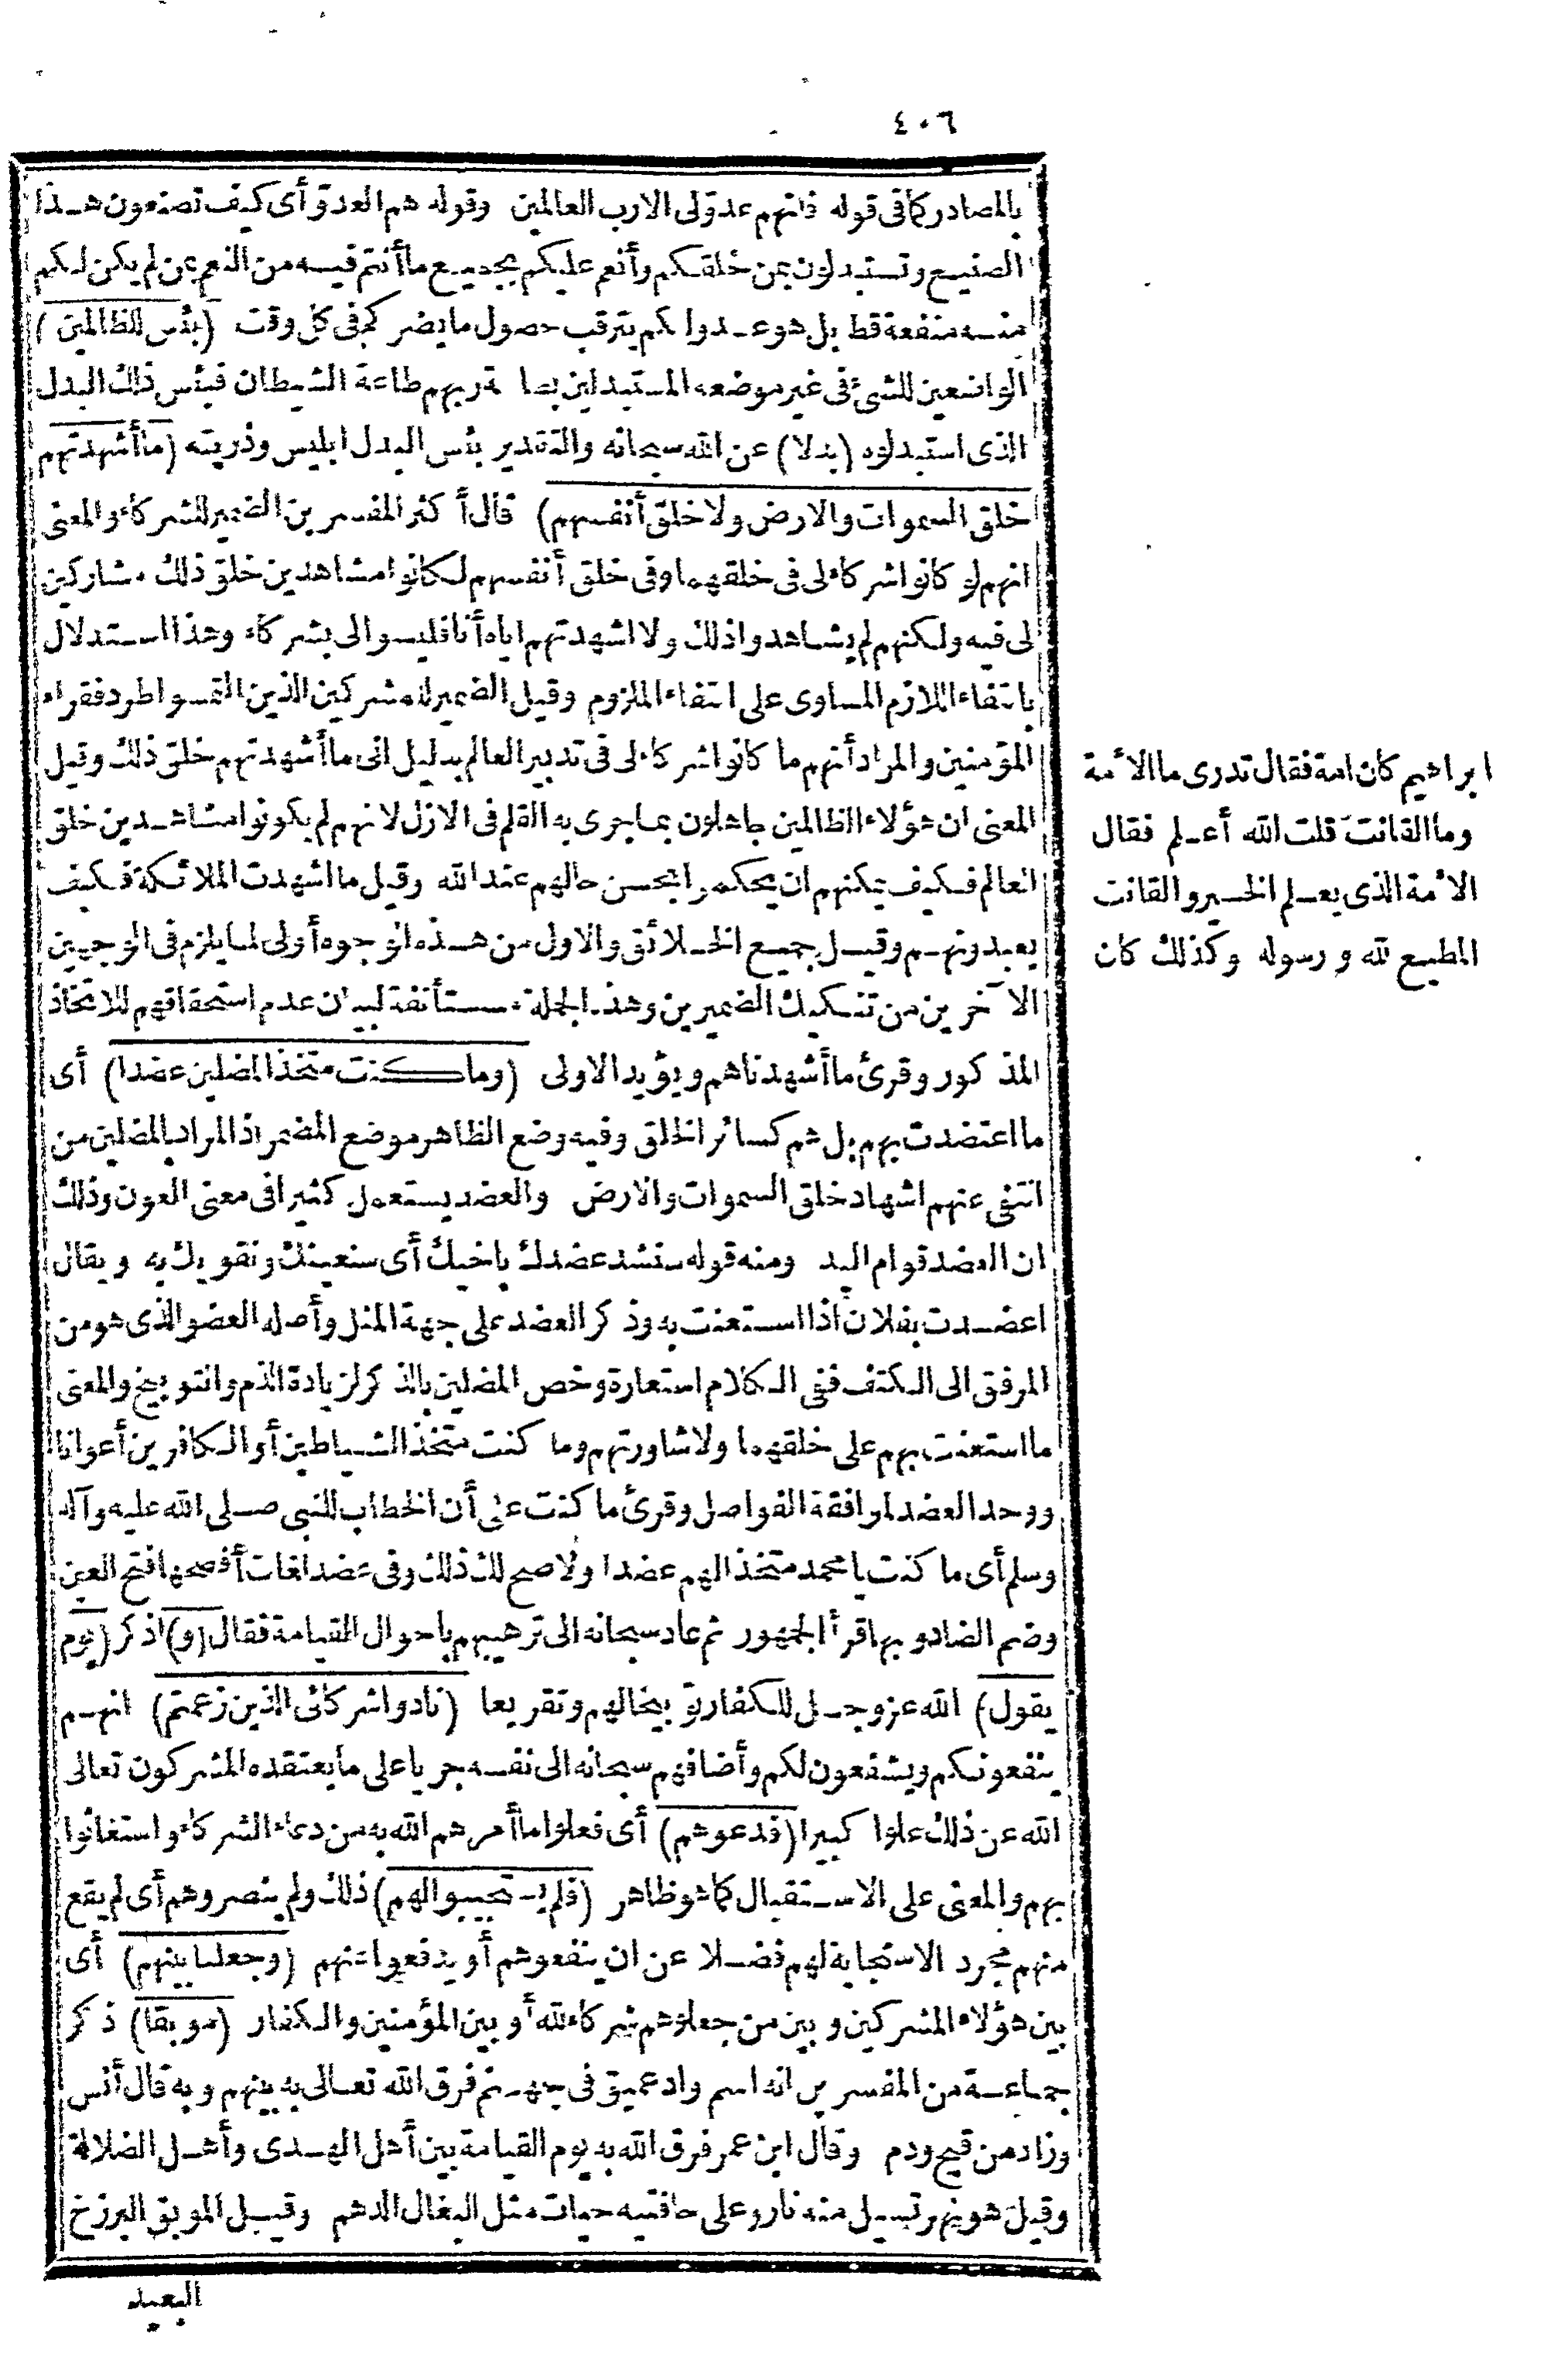 ٤٠٦
بالمصادر كما فى قوله فانهم عدو لى الا رب العالمين وقوله هم العدو أى كيف تصنعون هذا
الصنيع وتستبدلون بمن خلقكم وأنعم عليكم بجميع ما أنتم فيه من النعم بمن لم يكن لكم
منه منفعة قط بل هو عدو لكم يترقب حصول ما يضركم فى كل وقت (بئس للظالمين)
الواضعين للشئ فى غير موضعه المستبدلين بطاعة ربهم طاعة الشيطان فبئس ذلك البدل
الذى استبدلوه (بدلا) عن الله سبحانه والتقدير بئس البدل ابليس وذريته (ما أشهدتهم
خلق السموات والارض ولا خلق أنفسهم) قال أكثر المفسرين الضمير للشركاء والمعنى
انهم لو كانوا شركاء لى فى خلقهما وفى خلق أنفسهم لكانوا مشاهدين خلق ذلك مشاركين
لى فيه ولكنهم لم يشاهدوا ذلك ولا اشهدتهم اياه أنا فليسوا لى بشركاء وهذا استدلال
بانتفاء اللازم المساوى على انتفاء الملزوم وقيل الضمير للمشركين الذين التمسوا طرد فقراء
المؤمنين والمراد أنهم ما كانوا شركاء لى فى تدبير العالم بدليل انى ما أشهدتهم خلق ذلك وقيل
المعنى ان هؤلاء الظالمين جاهلون بما يجرى به القلم فى الازل لانهم لم يكونوا مشاهدين خلق
العالم فكيف يمكنهم ان يحكموا بحسن حالهم عند الله وقيل ما اشهدت الملائكة فكيف
يعبدونهم وقيل جميع الخلائق والاول من هذه الوجوه أولى لما يلزم فى الوجهين
الآخرين من تفكيك الضميرين وهذه الجملة مستأنفة لبيان عدم استحقاقهم للاتخاذ
المذكور وقرئ ما أشهدناهم ويؤيد الاولى (وما كنت متخذ المضلين عضدا) أى
ما اعتضدت بهم بل هم كسائر الخلق وفيه وضع الظاهر موضع المضمر اذ المراد بالمضلين من
انتفى عنهم اشهاد خلق السموات والارض والعضد يستعمل كثيرا فى معنى العون وذلك
ان العضد قوام اليد ومنه قوله سنشد عضدك باخيك أى سنعينك ونقويك به ويقال
اعضدت بفلان اذا استعنت به وذكر العضد على جهة المثل وأصله العضو الذى هو من
المرفق الى الكتف ففى الكلام استعارة وخص المضلين بالذكر لزيادة الذم والتوبيخ والمعنى
ما استعنت بهم على خلقهما ولا شاورتهم وما كنت متخذ الشياطين أو الكافرين أعوانا
ووحد العضد لموافقة الفواصل وقرئ ما كنت على أن الخطاب للنبى صلى الله عليه وآله
وسلم أى ما كنت يا محمد متخذ الهم عضدا ولا صح لك ذلك وفى عضد لغات أفصحها فتح العين
وضم الضاد وبها قرأ الجمهور ثم عاد سبحانه الى ترهيبهم باحوال القيامة فقال (و) اذكر (يوم
يقول) الله عز وجل للكفار توبيخا لهم وتقريعا (نادوا شركائى الذين زعمتم) انهم
ينفعونكم ويشفعون لكم وأضافهم سبحانه الى نفسه جريا على ما يعتقده المشركون تعالى
الله عن ذلك علوا كبيرا (فدعوهم) أى فعلوا ما أمرهم الله به من دعاء الشركاء واستغاثوا
بهم والمعنى على الاستقبال كما هو ظاهر (فلم يستجيبوا لهم) ذلك ولم ينصروهم أى لم يقع
منهم مجرد الاستجابة لهم فضلا عن ان ينفعوهم أو يدفعوا عنهم (وجعلنا بينهم) أى
بين هؤلاء المشركين وبين من جعلوهم شركاء لله أو بين المؤمنين والكفار (موبقا) ذكر
جماعة من المفسرين انه اسم واد عميق فى جهنم فرق الله تعالى به بينهم وبه قال أنس
وزاد من قيح ودم وقال ابن عمر فرق الله به يوم القيامة بين أهل الهدى وأهل الضلالة
وقيل هو نهر تسيل منه نار وعلى حافتيه حيات مثل البغال الدهم وقيل الموبق البرزخ
البعيد
ابراهيم كان امة فقال تدرى ما الأمة
وما القانت قلت الله أعلم فقال
الأمة الذى يعلم الخير والقانت
المطيع لله ورسوله وكذلك كان